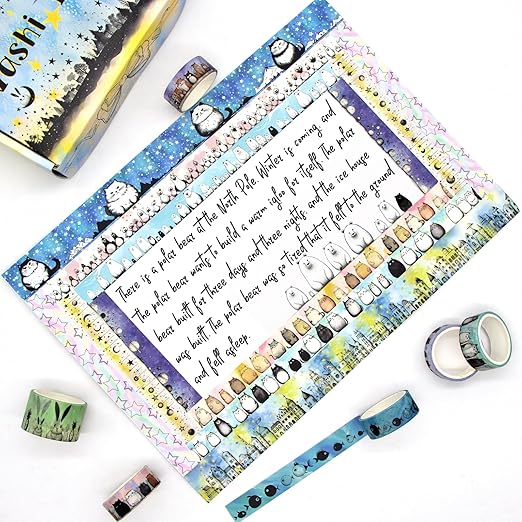 Washi
There is a polar bear at the North Pole. Winter is coming and
the polar bear wants to build a warm igloo for itself. The polar
bear built for three days and three nights, and the ice house
was built. The polar bear was so tired that it fell to the ground
and fell asleep.